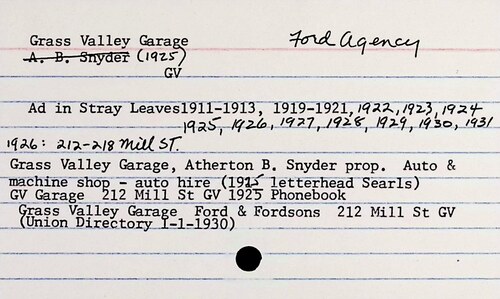 Grass Valley Garage Ford Agency
A. B. Snyder (1925)
GV
Ad in Stray Leaves1911-1913, 1919-1921, 1922, 1923, 1924
1925, 1926, 1927, 1928, 1929, 1930, 1931
1926: 212-218 Mill ST.
Grass Valley Garage, Atherton B. Snyder prop. Auto &
machine shop - auto hire (1915 letterhead Searls)
GV Garage 212 Mill St GV 1925 Phonebook
Grass Valley Garage Ford & Fordsons 212 Mill St GV
(Union Directory 1-1-1930)